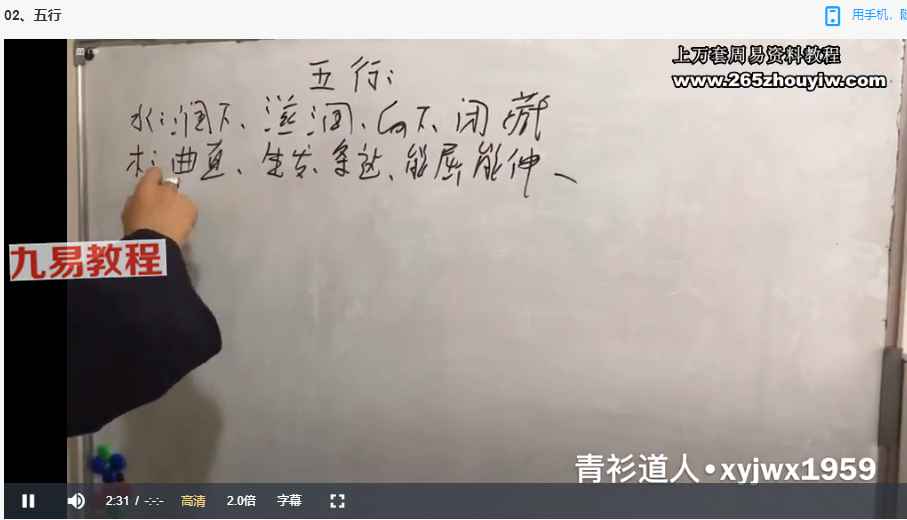 02、五行
用手机、
上万套周易资料教程
www.265zhouyiw.com
五行：
水：润下、滋润、向下、闭藏
木：曲直、生发、条达、能屈能伸、
九易教程
青衫道人•xyjwx1959
2:31 / -:-:- 高清 2.0倍 字幕